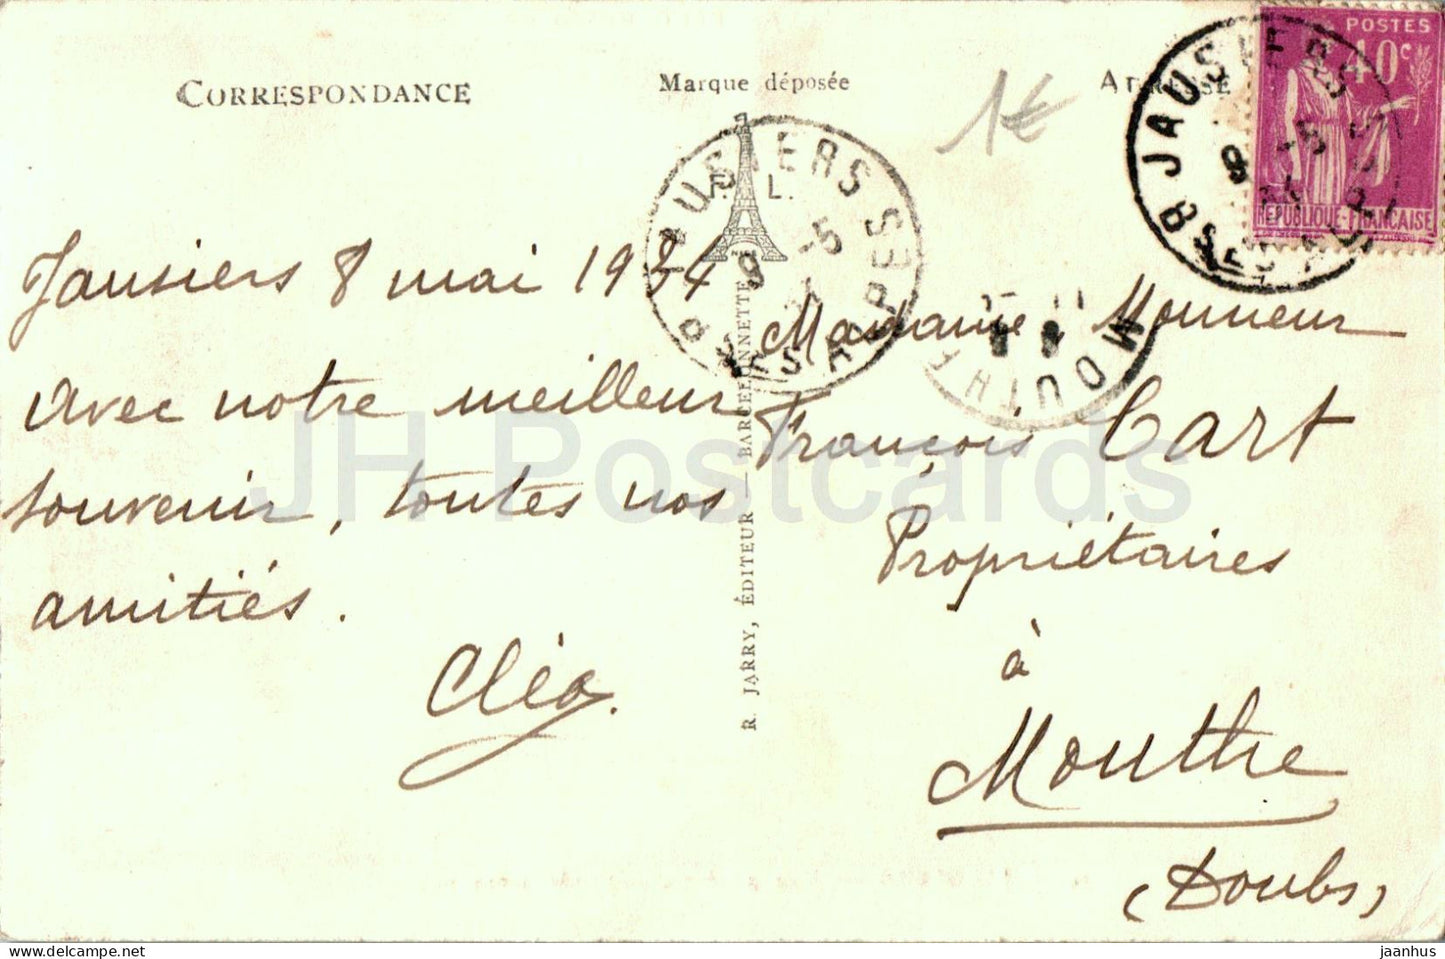 CORRESPONDANCE
Marque déposée
ADRESSE
1€
POSTES
40c
REPUBLIQUE-FRANÇAISE
JAUSIERS
BSES ALPES
9 -5
34
JAUSIERS
BSES ALPES
9 -5
34
P. L.
MOUTHE
Jausiers 8 mai 1934
Avec notre meilleur
souvenir, toutes nos
amitiés.
Cléo.
R. JARRY, ÉDITEUR — BARCELONNETTE
Madame, Monneur
François Cart
Propriétaires
à
Mouthe
(Doubs)
JH Postcards
jaanhus